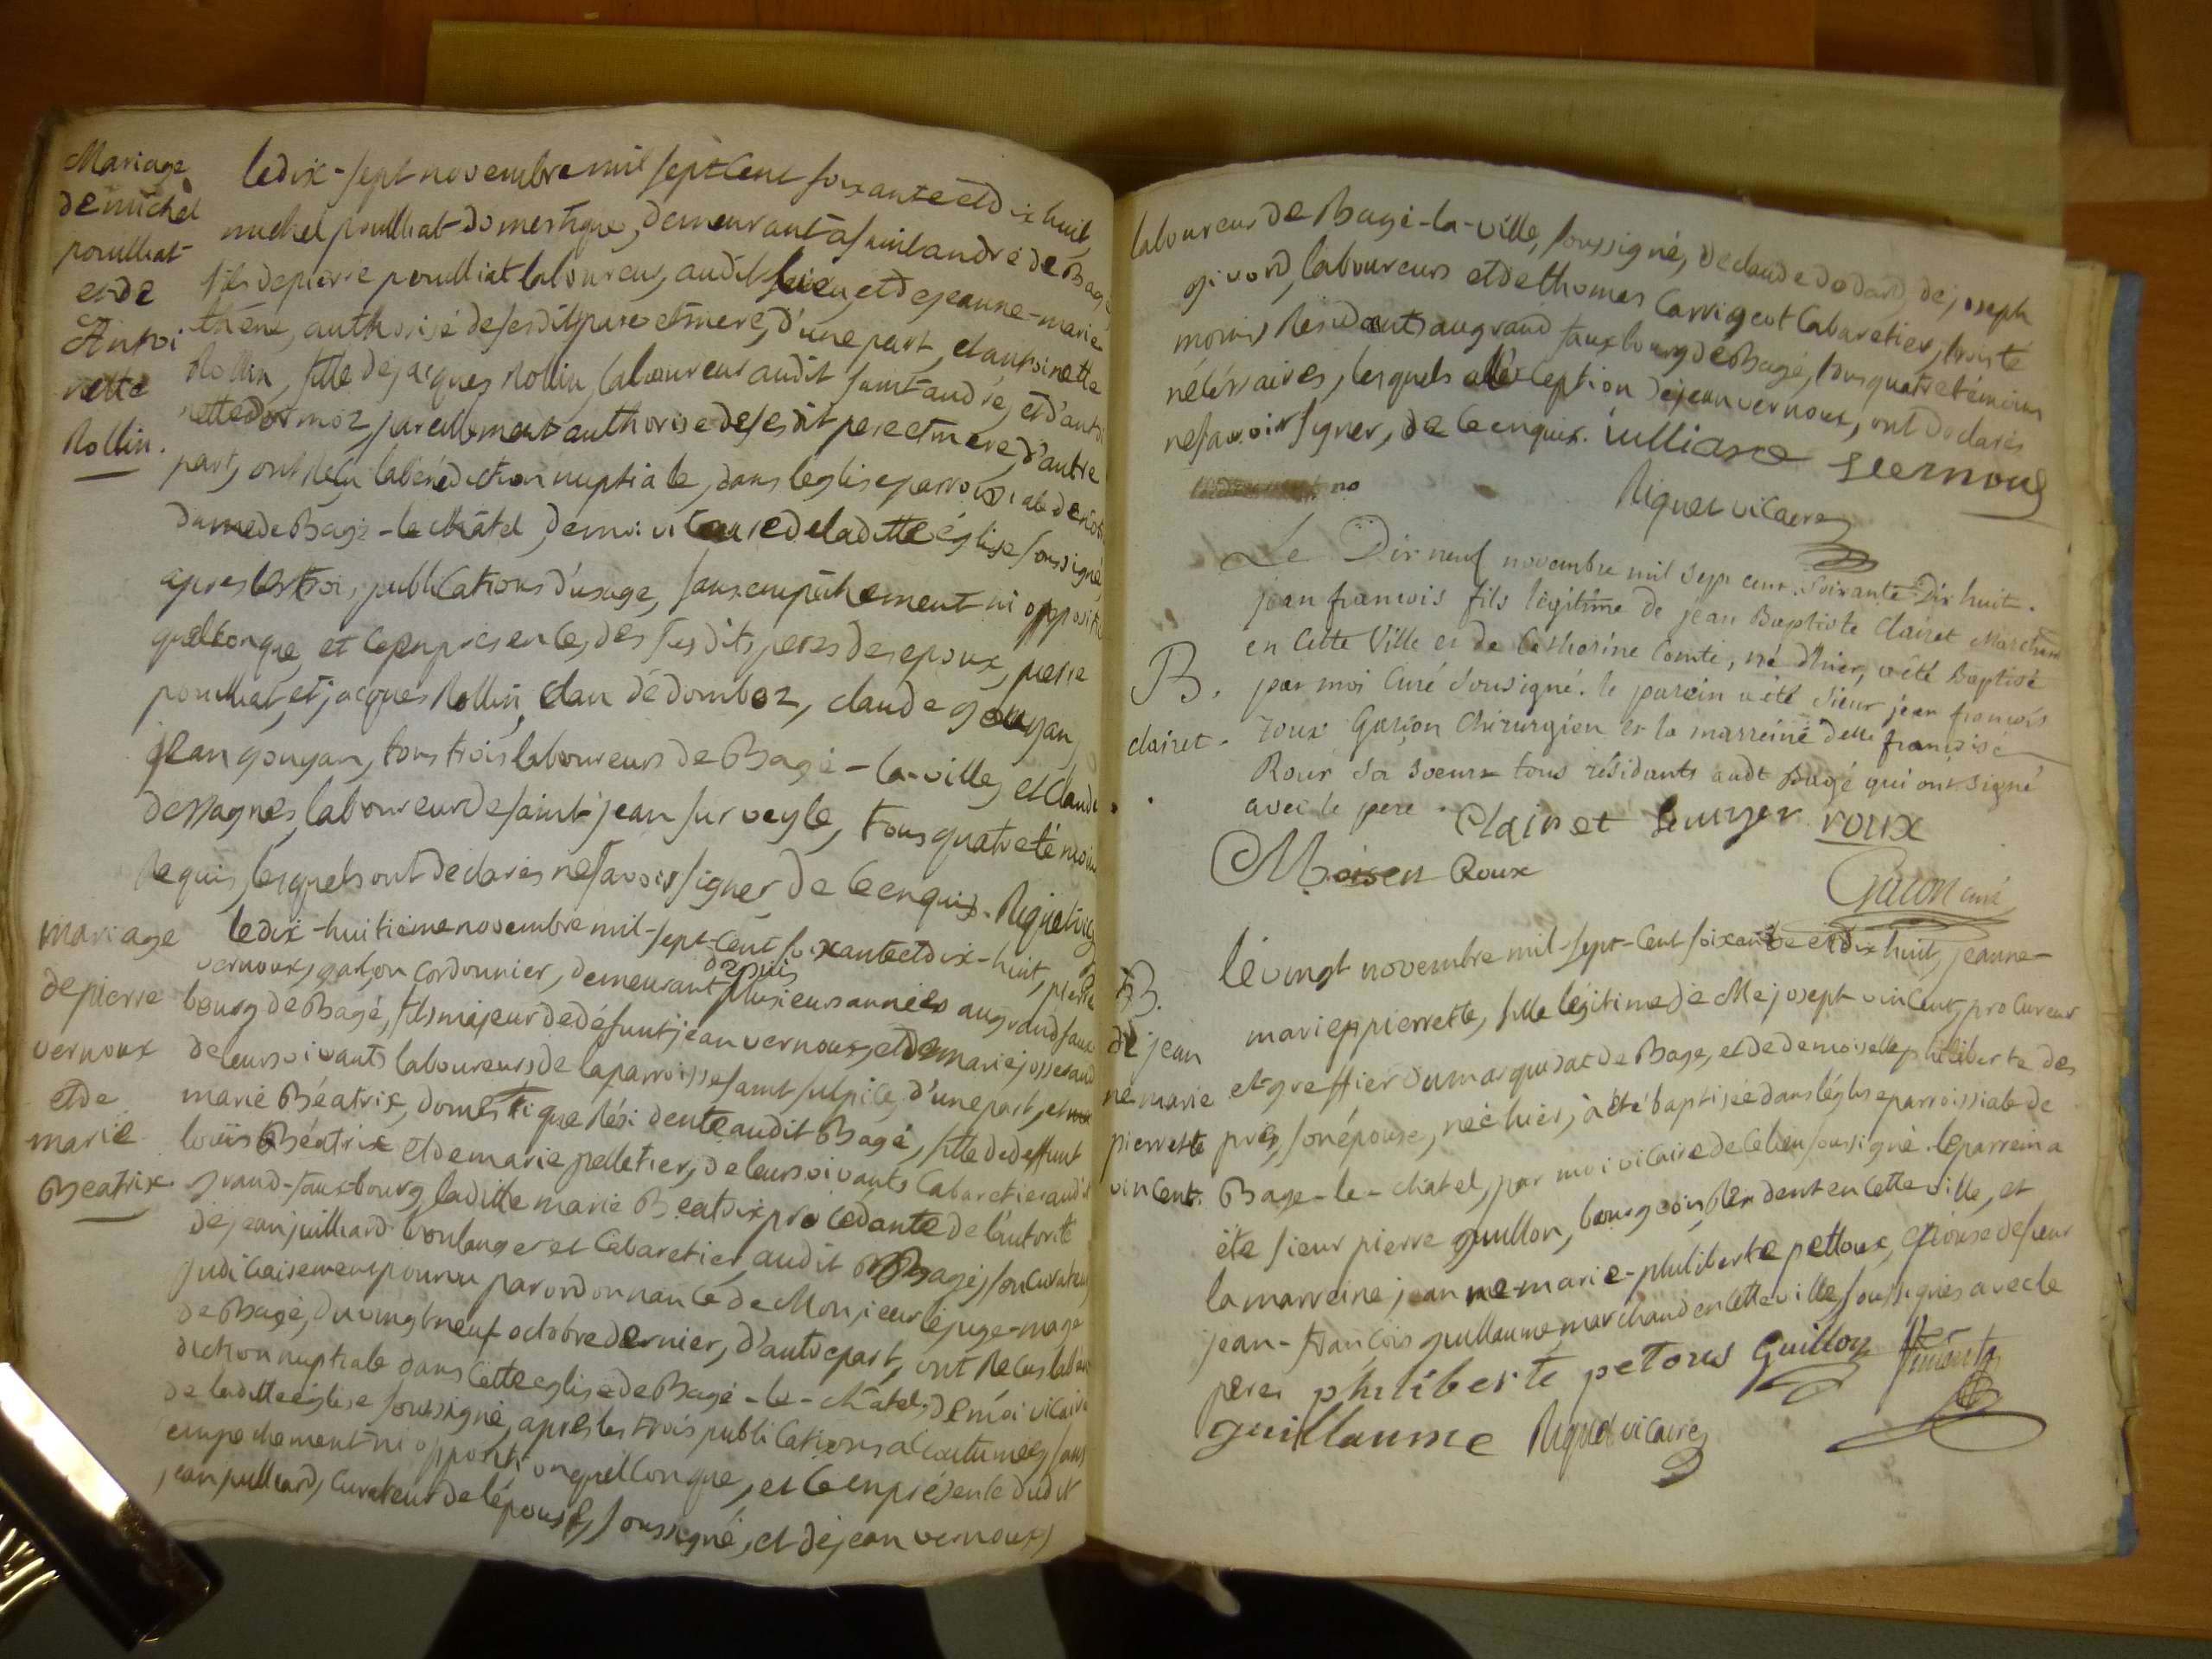 Mariage
de michel
poulliat
et de
Antoi
nette
Rollin.
le dix-sept novembre mil sept cent soixante et dix huit,
michel poulliat domestique, demeurant a saint andré de Bagé
fils de pierre poulliat laboureur, audit lieu, et de jeanne-marie
théne, authorisé de ses dits pere et mere, d'une part, et antoinette
Rollin, fille de jacques Rollin, laboureur audit saint andré, et d'antoi
nette dormoz, pareillement authorisé de ses dit pere et mere, d'autre
part, ont reçu la bénédiction nuptiale, dans l'eglise parroissiale de notre
dame de Bagé-le-châtel, de moi vicaire de la ditte église soussigné,
apres les trois publications d'usage, sans empêchement ni opposition
quelconque, et ce en presence, des susdits peres des epoux, pierre
poulliat, et jacques Rollin, dedomboz, claude gouyan,
jean gouyan, tous trois laboureurs de Bagé-la-ville, et claude
dessagnes, laboureur de saint-jean sur veyle, tous quatre témoins
requis, lesquels ont declarés ne savoir signer de ce enquis. Riquet vicaire
mariage
de pierre
vernoux
et de
marie
Beatrix
le dix-huitieme novembre mil-sept-cent soixante et dix-huit, pierre
vernoux, garçon cordonnier, demeurant depuis plusieurs années au grand faux
bourg de Bagé, fils majeur de défunt jean vernoux, et de marie josserand
de leurs vivants laboureurs de la parroisse saint sulpice, d'une part, et
marie Béatrix, domestique résidente audit Bagé, fille de deffunt
louis Béatrix et de marie pelletier, de leurs vivants cabaretier audit
grand-fauxbourg, laditte marie Beatrix procédante de l'autorité
de jean juilliard boulanger et cabaretier audit Bagé, son curateur
judiciairement pourvu par ordonnance de Monsieur le juge-mage
de Bagé, du vingt neuf octobre dernier, d'autre part, ont recus la béné
diction nuptiale dans cette eglise de Bagé-le-châtel, de moi vicaire
de laditte église soussigné, apres les trois publications accoutumées, sans
empechement ni opposition quelconque, et ce en présence dudit
jean juilliard, curateur de l'épouse, soussigné, et de jean vernoux,
laboureur de Bagé-la-ville, soussigné, de claude dodard, de joseph
givord, laboureurs et de thomas Carrigeot cabaretier, trois té
moins résidents au grand fauxbourg de Bagé, tous quatre témoins
nécéssaires, lesquels à l'éxception de jean vernoux, ont declarés
ne savoir signer, de ce enquis. iulliard Jvernoux
no
Riquet vicaire
B.
clairet.
Le Dix neuf novembre mil sept cent soixante Dix huit.
jean francois fils légitime de jean Baptiste clairet Marchand
en cette Ville et de Catherine Comte, né d'hier, a été Baptisé
par moi Curé sousigné. le parein a été sieur jean francois
roux Garçon Chirurgien et la marreine delle francoise
Roux sa soeur tous résidants audt Bagé qui ont signé
avec le pere.
Clairet roux
Roux
curé
B.
de jean
ne marie
pierrette
vincent.
le vingt novembre mil-sept-cent soixante et dix huit, jeanne-
marie pierrette, fille légitime de Me joseph vincent, procureur
et greffier du marquisat de Bagé, et de demoiselle philiberte des
prés, son épouse, née hier, à été baptisée dans l'église parroissiale de
Bagé-le-châtel, par moi vicaire de ce lieu soussigné. le parrein a
été sieur pierre guillon, bourgeois, résident en cette ville, et
la marreine jeanne-marie-philiberte pettoux, épouse de sieur
jean-françois guillaume, marchand en cette ville, soussignés avec le
pere. philiberte petous Guillon Vincent
guillaume Riquet vicaire